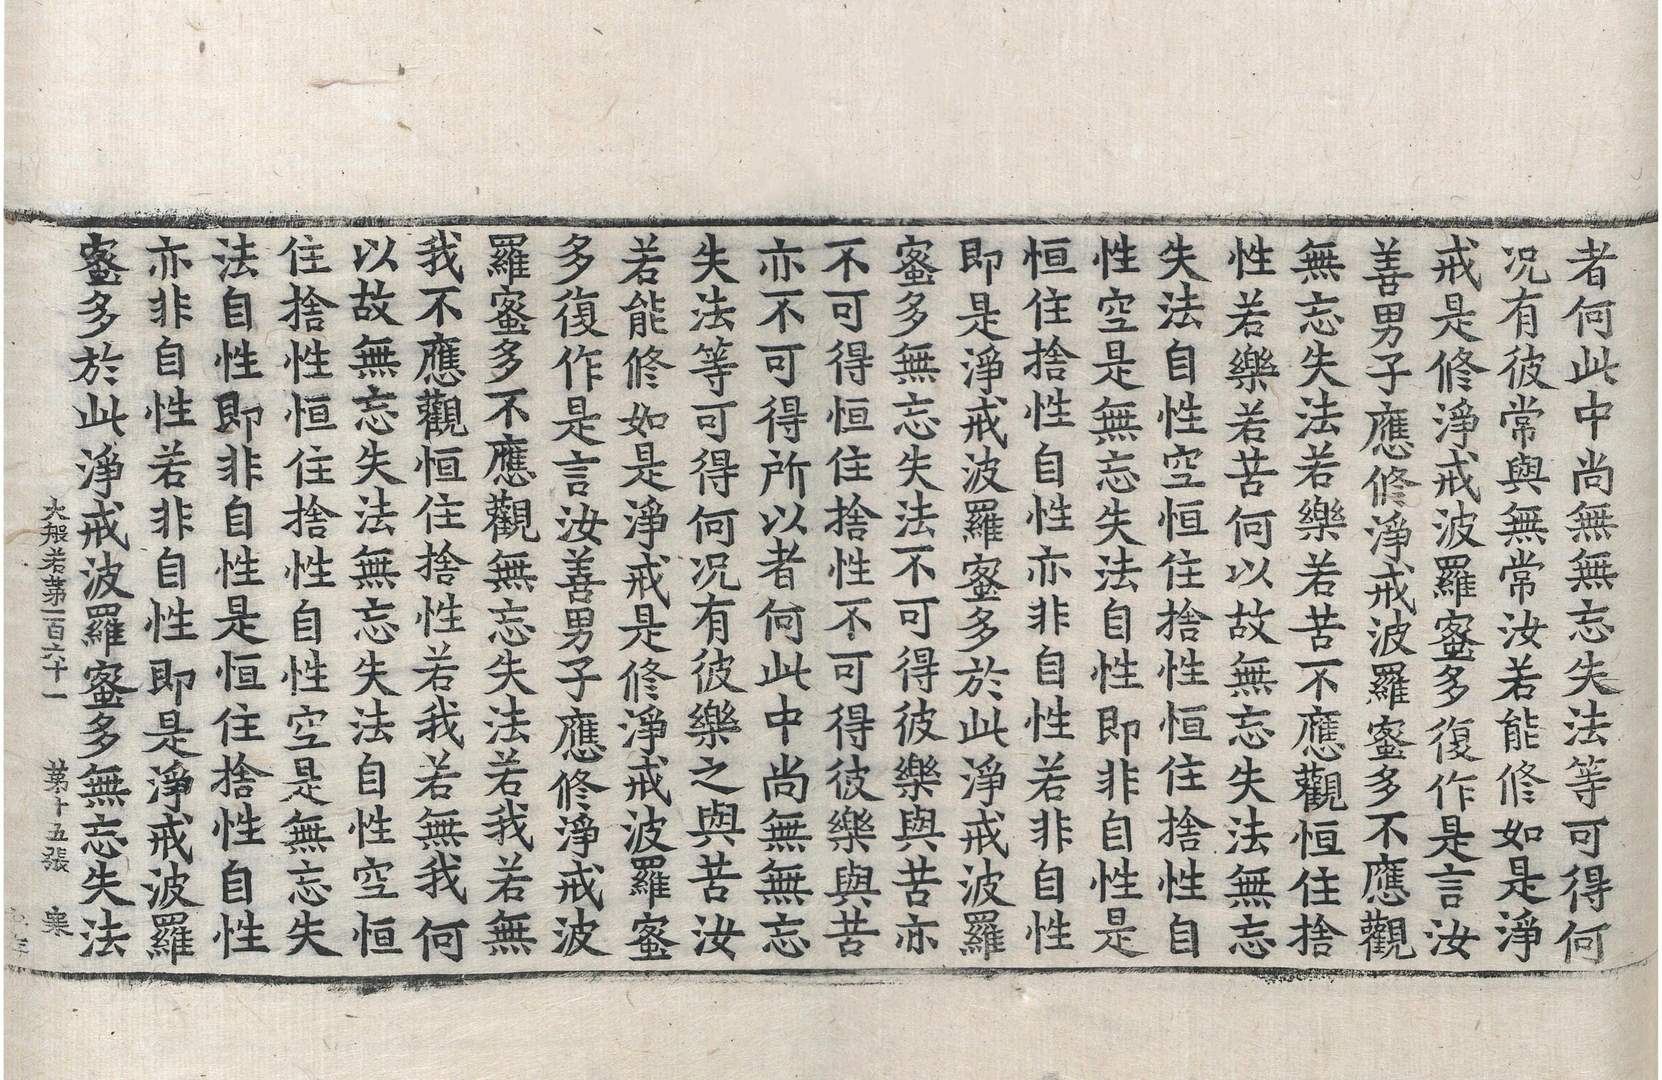 者何此中尚無無忘失法等可得何
况有彼常與無常汝若能修如是淨
戒是修淨戒波羅蜜多復作是言汝
善男子應修淨戒波羅蜜多不應觀
無忘失法若樂若苦不應觀恒住捨
性若樂若苦何以故無忘失法無忘
失法自性空恒住捨性恒住捨性自
性空是無忘失法自性即非自性是
恒住捨性自性亦非自性若非自性
即是淨戒波羅蜜多於此淨戒波羅
蜜多無忘失法不可得彼樂與苦亦
不可得恒住捨性不可得彼樂與苦
亦不可得所以者何此中尚無無忘
失法等可得何况有彼樂之與苦汝
若能修如是淨戒是修淨戒波羅蜜
多復作是言汝善男子應修淨戒波
羅蜜多不應觀無忘失法若我若無
我不應觀恒住捨性若我若無我何
以故無忘失法無忘失法自性空恒
住捨性恒住捨性自性空是無忘失
法自性即非自性是恒住捨性自性
亦非自性若非自性即是淨戒波羅
蜜多於此淨戒波羅蜜多無忘失法
大般若第一百六十一 第十五張